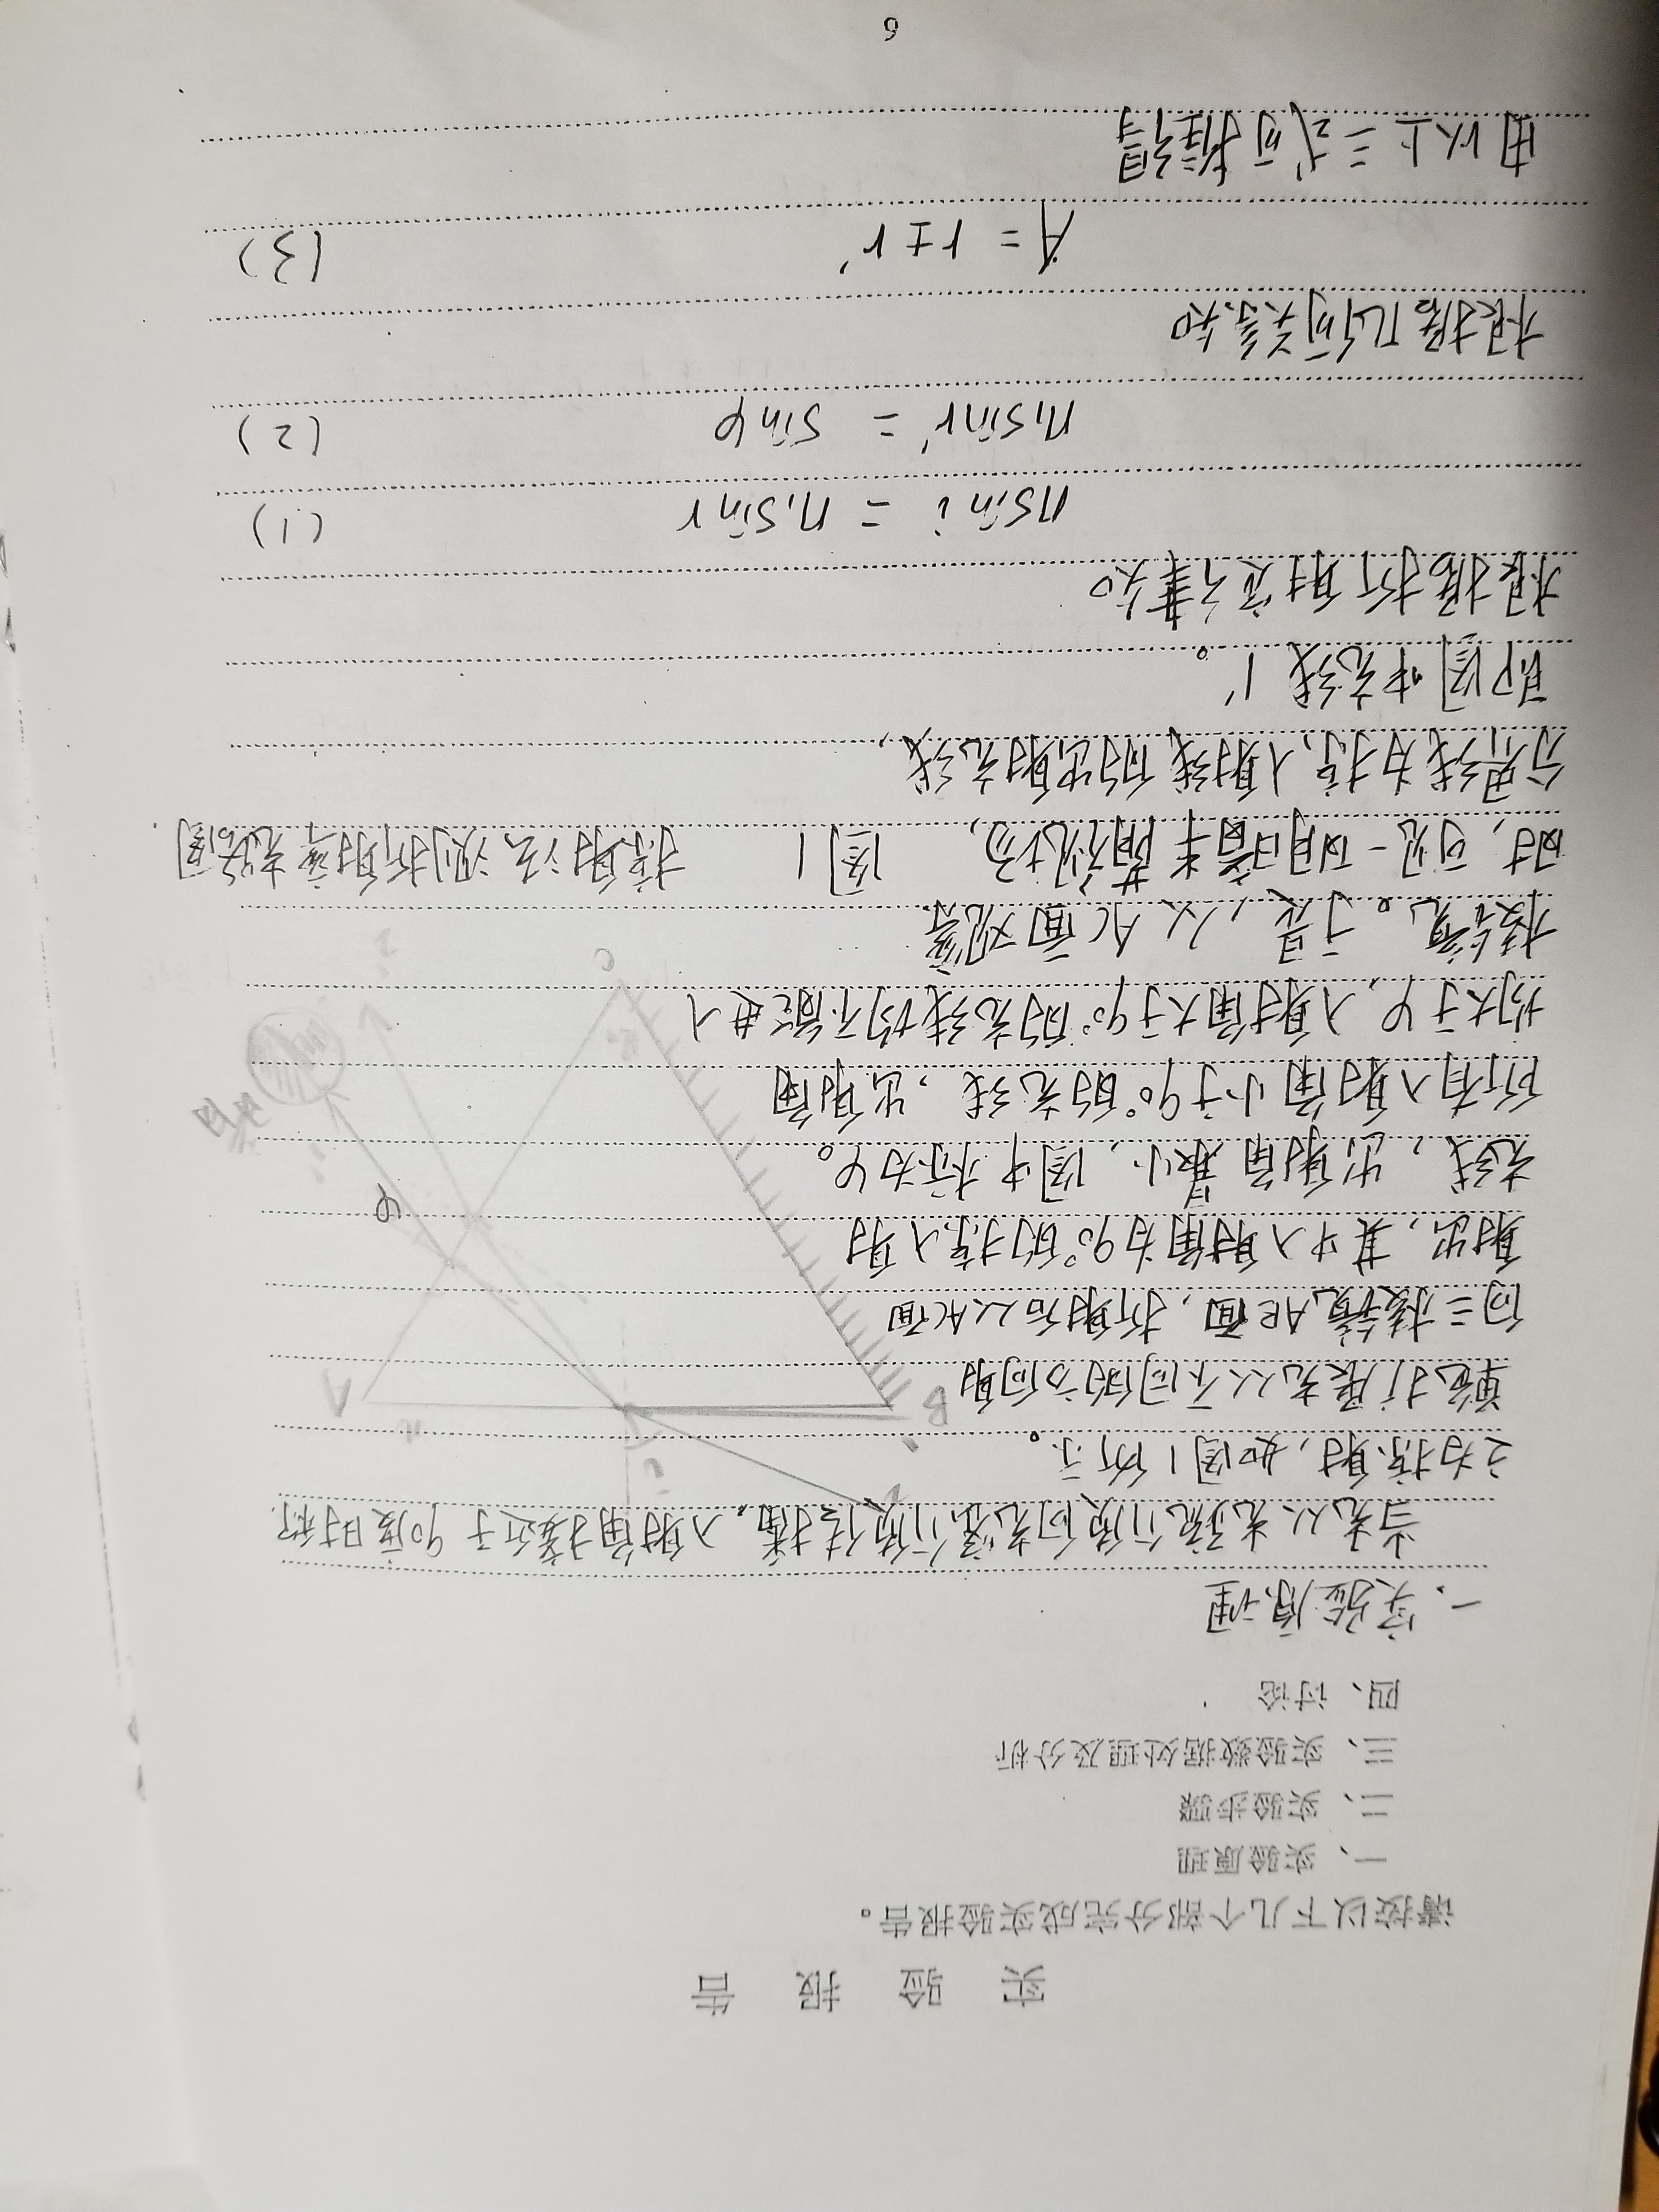 实 验 报 告
请按以下几个部分完成实验报告。
一、实验原理
二、实验步骤
三、实验数据处理及分析
四、讨论
一、实验原理
当光从光疏介质向光密介质传播，入射角接近于90度时称
之为掠射，如图1所示。
单色扩展光从不同的方向射
向三棱镜AB面，折射后从AC面
射出，其中入射角为90°的掠入射
光线，出射角最小，图中标为φ。
所有入射角小于90°的光线，出射角
均大于φ，入射角大于90°的光线均不能进入
棱镜。于是，从AC面观察
时，可见一明暗半荫视场，
分界线为掠入射线的出射光线，
即图中光线1'。
A
B
C
n
φ
图1 掠射法测折射率光路图
根据折射定律知
n sin i = n₁ sin r (1)
n₁ sin r' = sin φ (2)
根据几何关系知
A = r ± r' (3)
由以上三式可推得
6